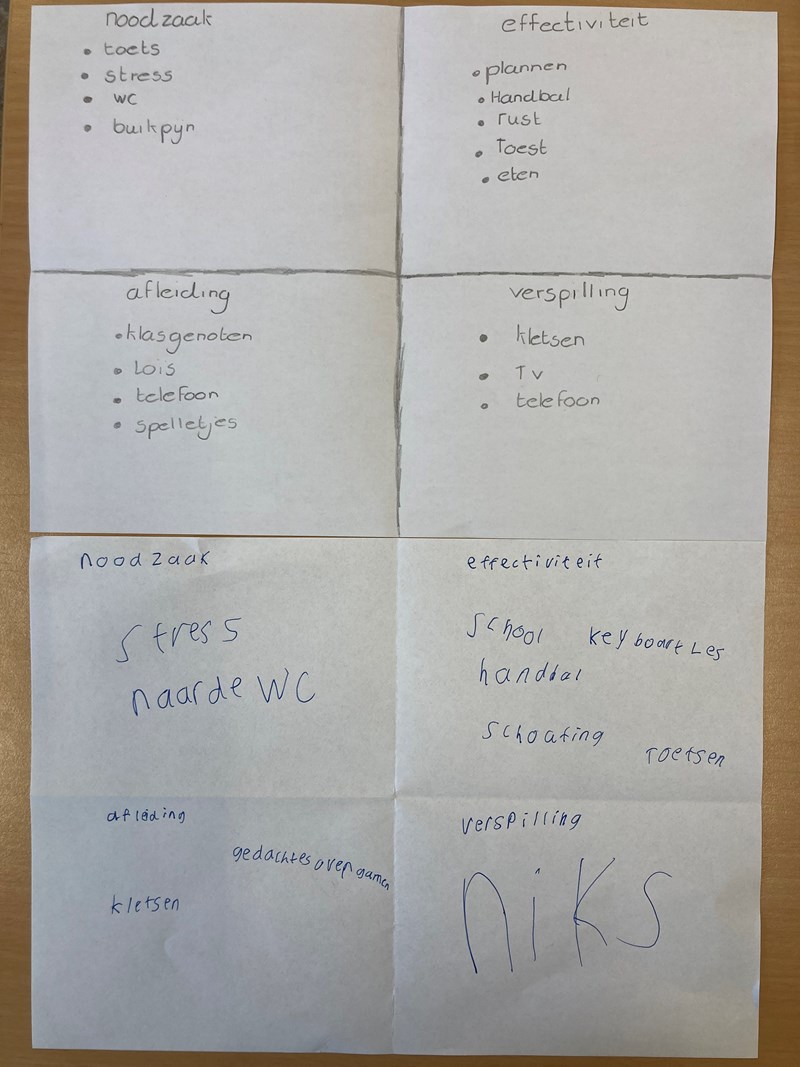 noodzaak
• toets
• stress
• wc
• buikpyn
effectiviteit
• plannen
• Handbal
• rust
• Toest
• eten
afleiding
• klasgenoten
• Lois
• telefoon
• spelletjes
verspilling
• kletsen
• Tv
• telefoon
noodzaak
stress
naar de WC
effectiviteit
school keyboart Les
handbal
schoating
Toetsen
afleiding
gedachtes over gamen
kletsen
verspilling
niks